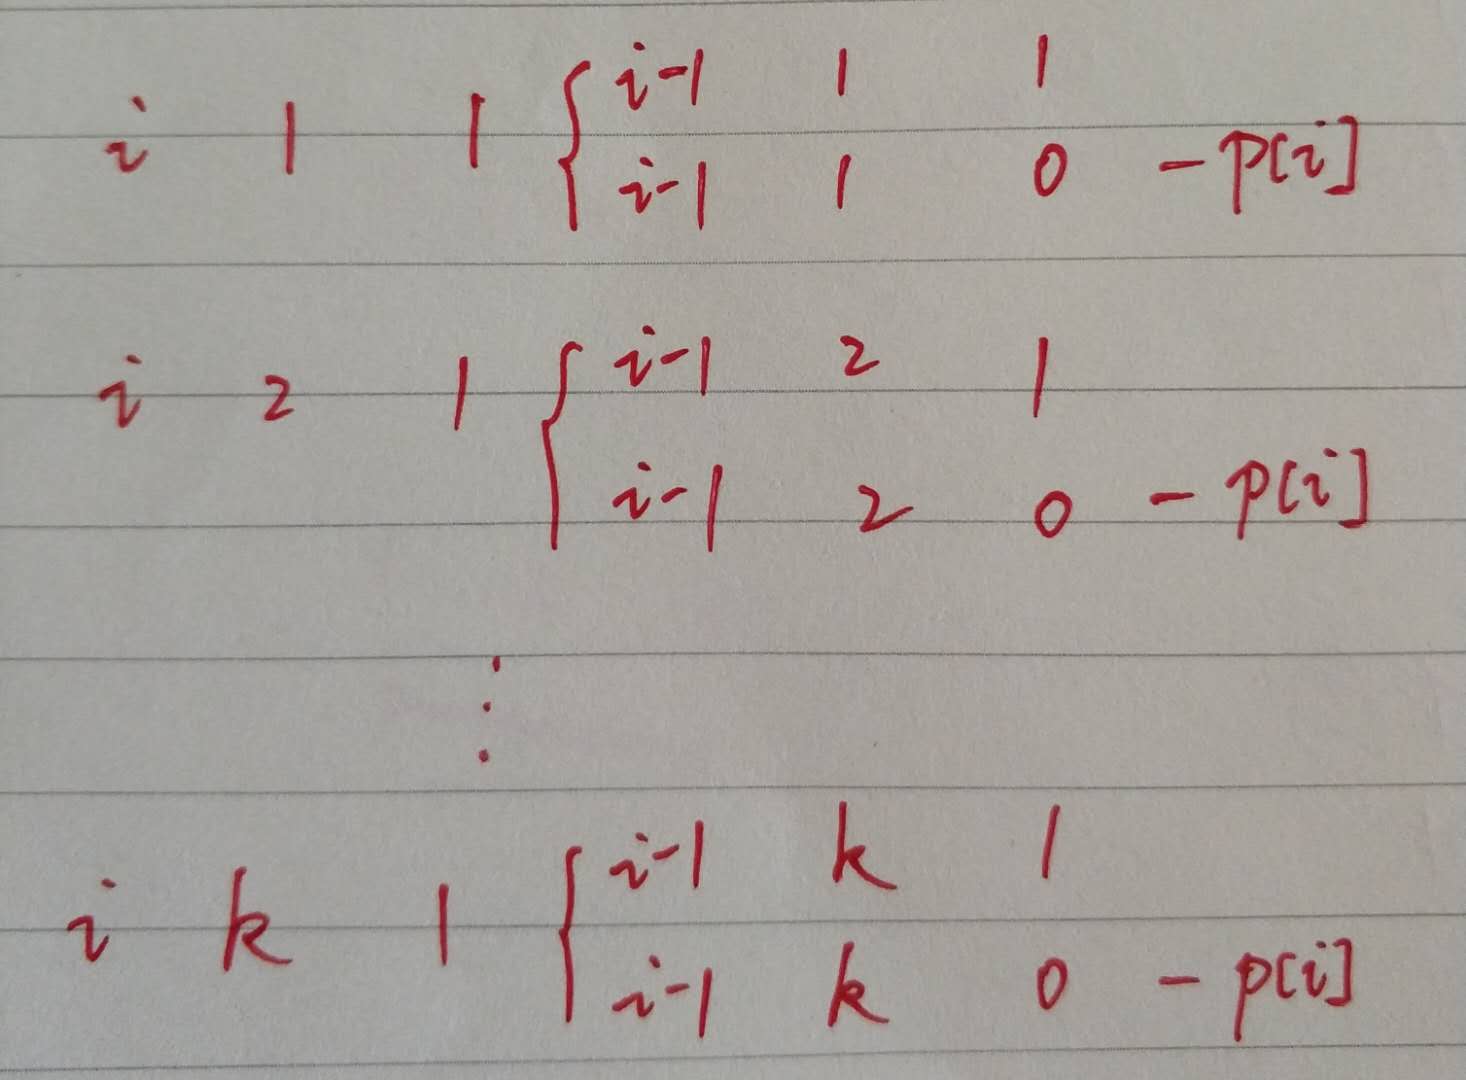 i-1 1 1
i 1 1 {
i-1 1 0 - p[i]
i-1 2 1
i 2 1 {
i-1 2 0 - p[i]
⋮
i-1 k 1
i k 1 {
i-1 k 0 - p[i]